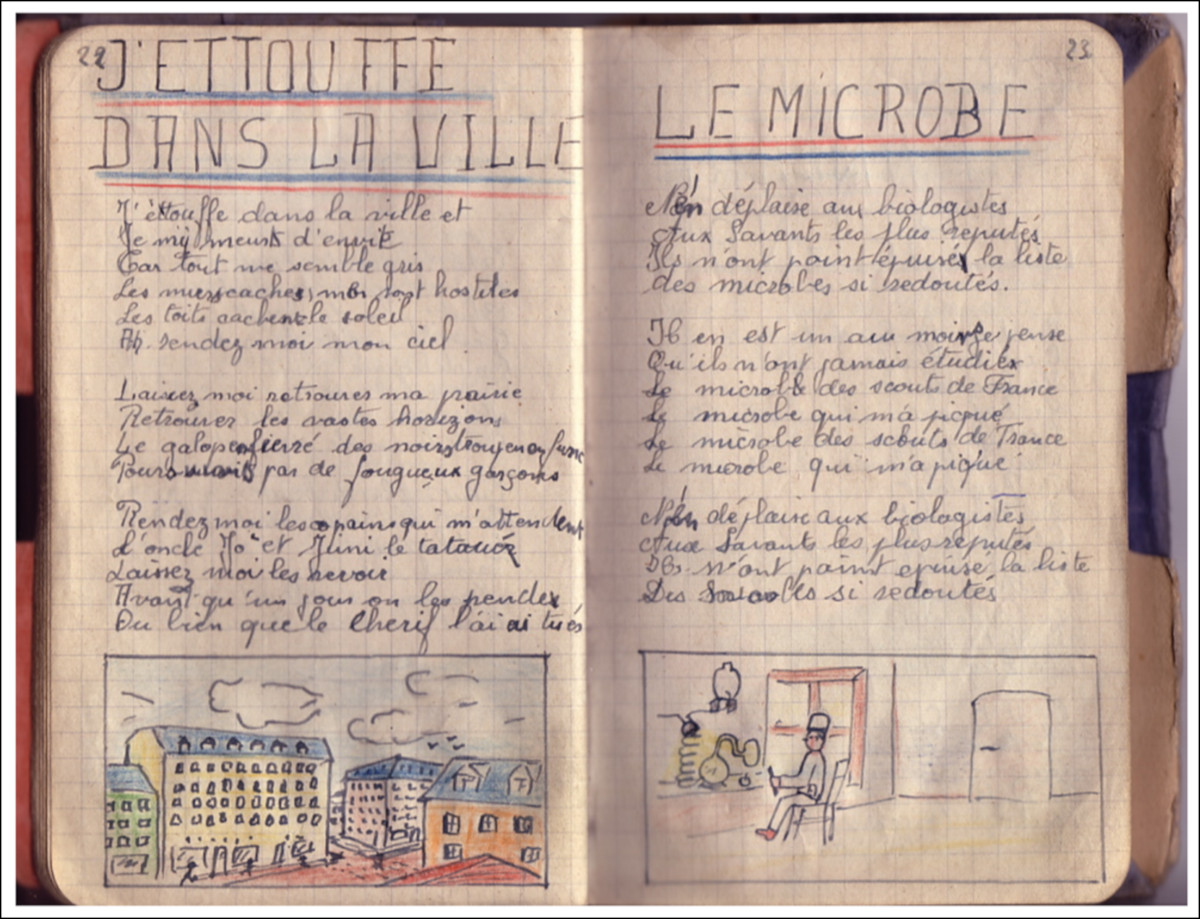 22
J'ETTOUFFE
DANS LA VILLE
J'éttouffe dans la ville et
Je m'y meurs d'envie
Car tout me semble gris
Les murs caches, moi sont hostiles
Les toits cachent le soleil
Ah. rendez moi mon ciel.
Laissez moi retrouver ma prairie
Retrouver les vastes horizons
Le galop des noirs troupeaux
par de fougueux garçons
Rendez moi les copains qui m'attendent
L'oncle Jo et Jimi le tatoué
Laissez moi les revoir
Avant qu'un jour on les pendes
Ou bien que le Cherif l'ai ai tués
23
LE MICROBE
N'én déplaise aux biologistes
Aux Savants les plus reputés
Ils n'ont point épuisé la liste
des microbes si redoutés.
Il en est un au moins je pense
Qu'ils n'ont jamais étudiér
Le microbe des scouts de France
Le microbe qui m'a picqué
Le microbe des scouts de France
Le microbe qui m'a piqué
N'én déplaise aux biologistes
Aux Savants les plus reputés
Ils n'ont point epuisé la liste
Des si redoutés